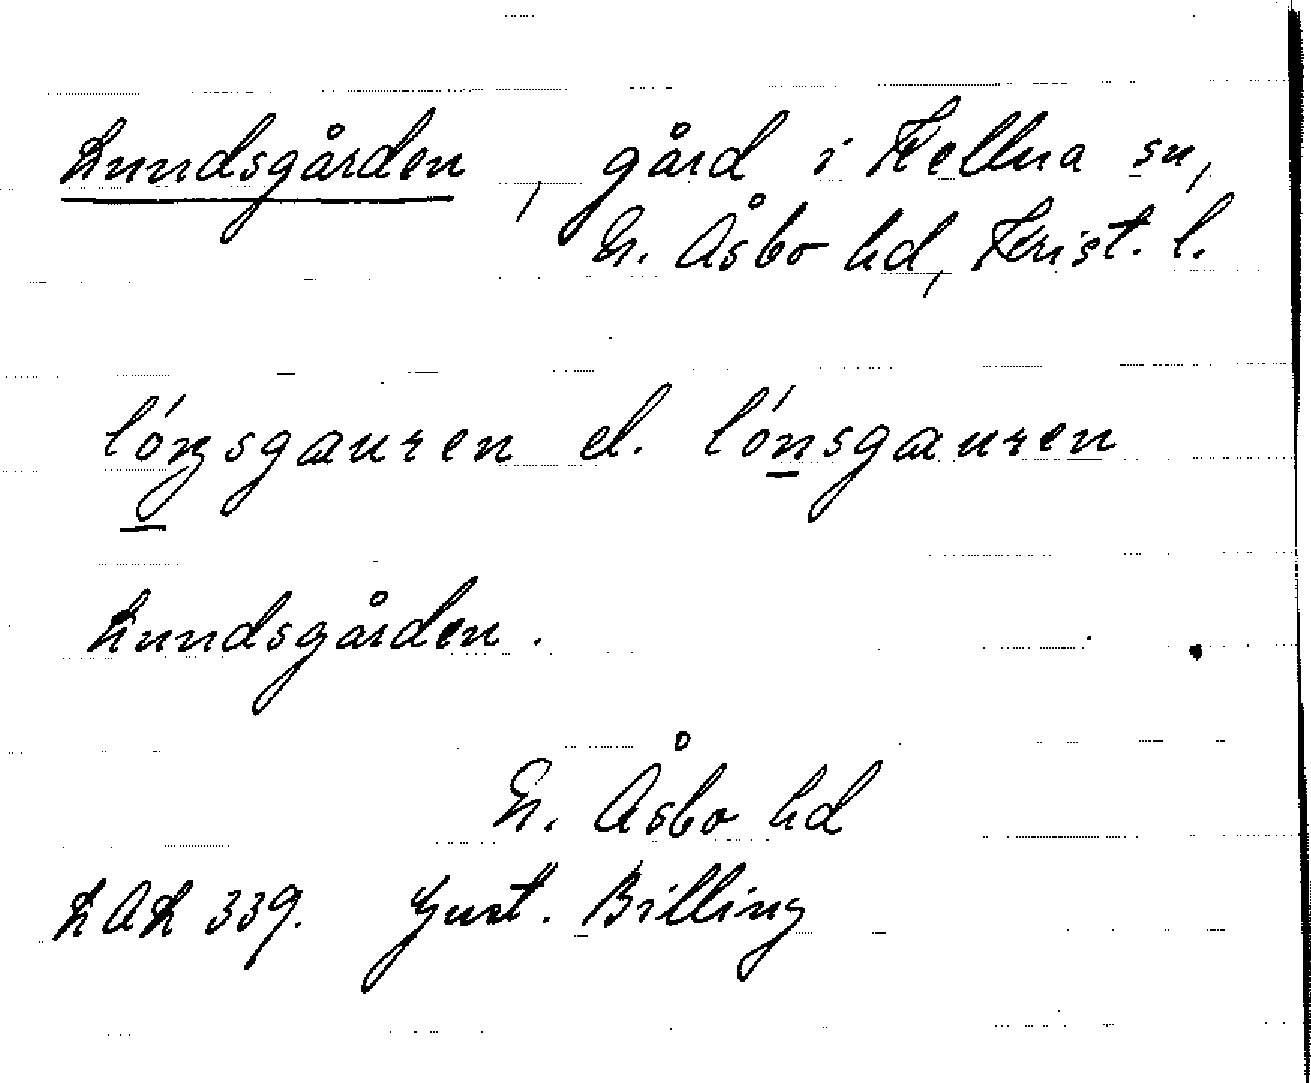 Lundsgården, gård i Kellna sn,
N. Åsbo hd, Krist. l.
lóŋsgæuren el. lónsgæuren
Lundsgården.
N. Åsbo hd
LAL 339. Gust. Billing